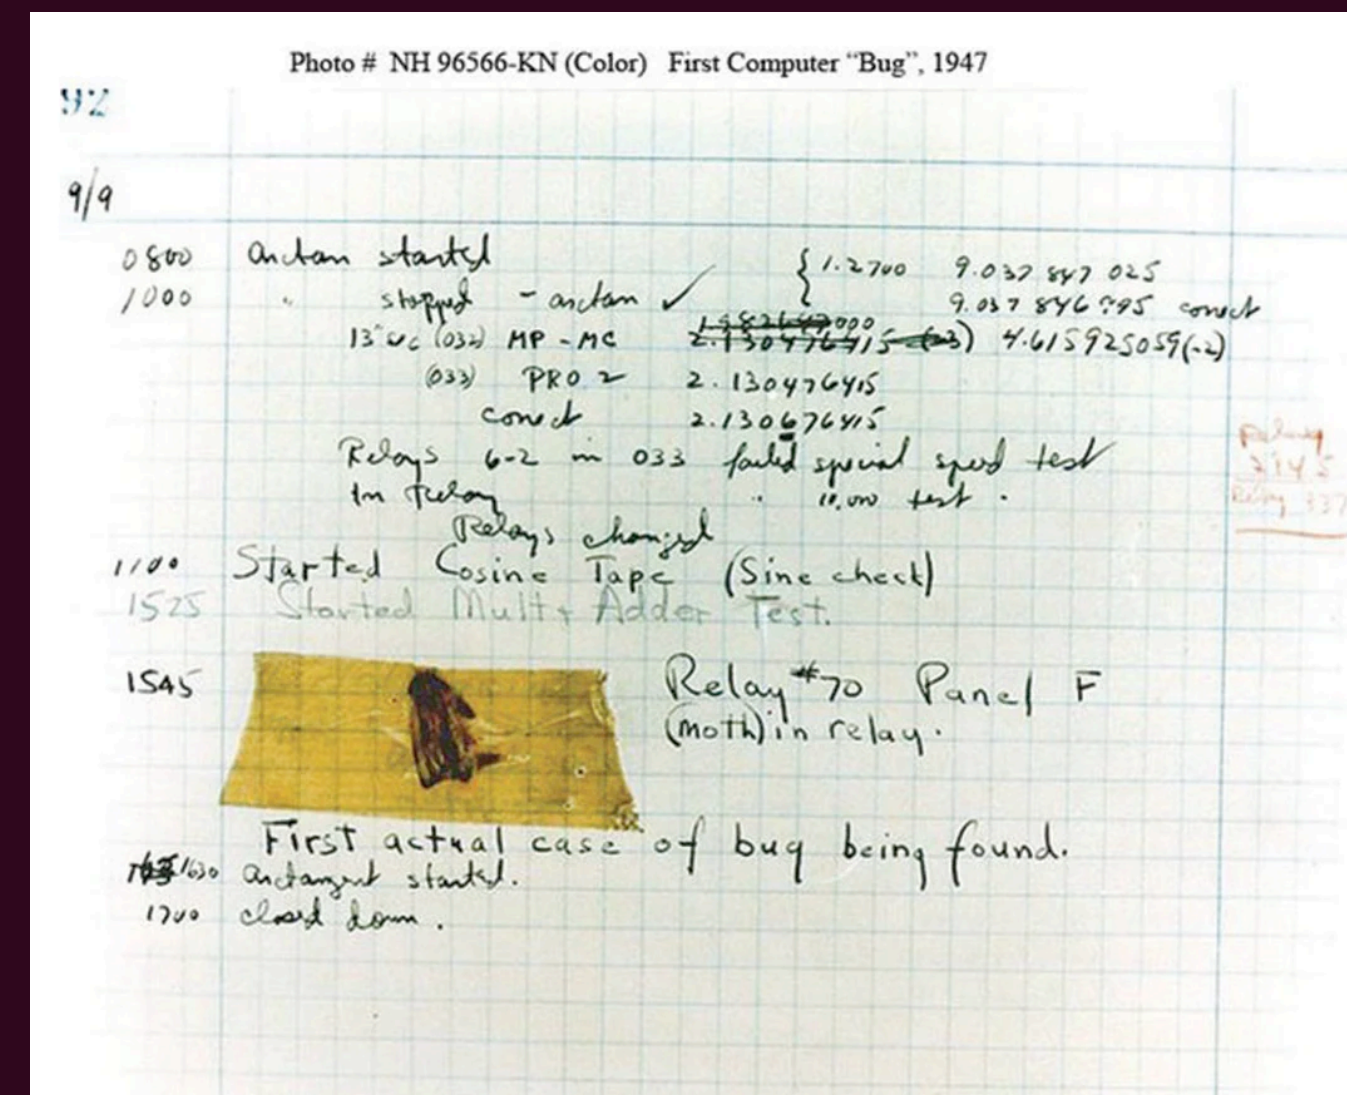 Photo # NH 96566-KN (Color) First Computer “Bug”, 1947
92
9/9
0800 Antan started
1000 " stopped - antan ✓ { 1.2700 9.037 847 025
9.037 846 995 correct
13"uc (032) MP - MC 4.615925059(-2)
(033) PRO 2 2.130476415
correct 2.130676415
Relays 6-2 in 033 failed special speed test
In relay " 10,000 test .
Relays changed
1100 Started Cosine Tape (Sine check)
1525 Started Mult+ Adder Test.
1545 Relay #70 Panel F
(moth) in relay.
First actual case of bug being found.
1630 antangent started.
1700 closed down .
Relay
2145
Relay 337